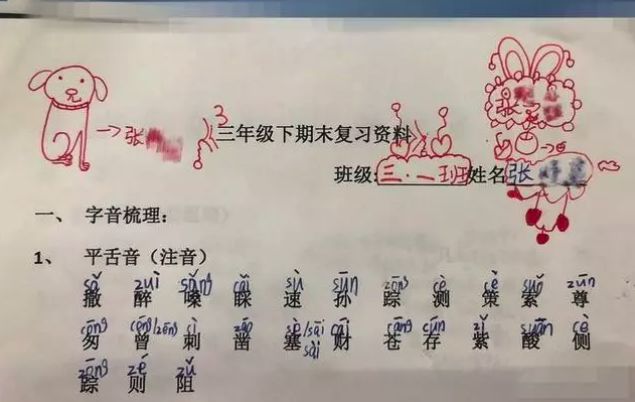 张
三年级下期末复习资料
张
班级:三.一班姓名张
一、 字音梳理：
1、 平舌音（注音）
sǎ zuì sǎng cǎi sù sūn zōng cè cè suǒ zūn
撒 醉 嗓 睬 速 孙 踪 测 策 索 尊
cōng céng/zēng cì záo sè/sāi/sài cái cāng cún zǐ suān cè
匆 曾 刺 凿 塞 财 苍 存 紫 酸 侧
zōng zé zǔ
踪 则 阻